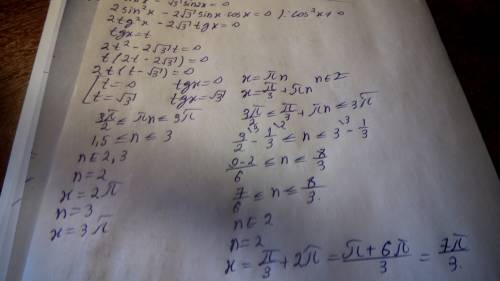 2sin²x - 2√3 sinx cosx = 0 ): cos²x ≠ 0
2tg²x - 2√3 tgx = 0
tgx = t
2t² - 2√3 t = 0
t(2t - 2√3) = 0
2t(t - √3) = 0
[t = 0 tgx = 0
[t = √3 tgx = √3
3π/2 ≤ πn ≤ 3π
1,5 ≤ n ≤ 3
n ∈ 2, 3
n = 2
x = 2π
n = 3
x = 3π
x = πn n ∈ Z
x = π/3 + πn
3π/2 ≤ π/3 + πn ≤ 3π
3/2 - 1/3 ≤ n ≤ 3 - 1/3
9-2/6 ≤ n ≤ 8/3
7/6 ≤ n ≤ 8/3
n ∈ 2
n = 2
x = π/3 + 2π = π + 6π/3 = 7π/3